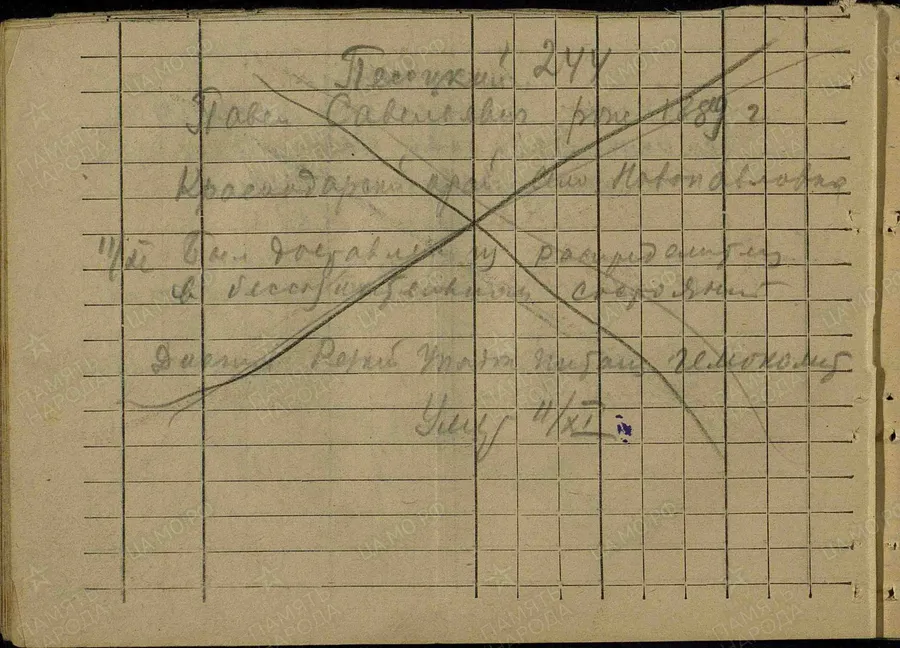 Песоцкий 244
Павел Савельевич рож 1889 г
Краснодарский край село Новопавловка
11/XI Был доставлен из распределителя
в бессознательном состоянии
Диагноз Резкий упадок питан гемоколит
Умер 11/XI